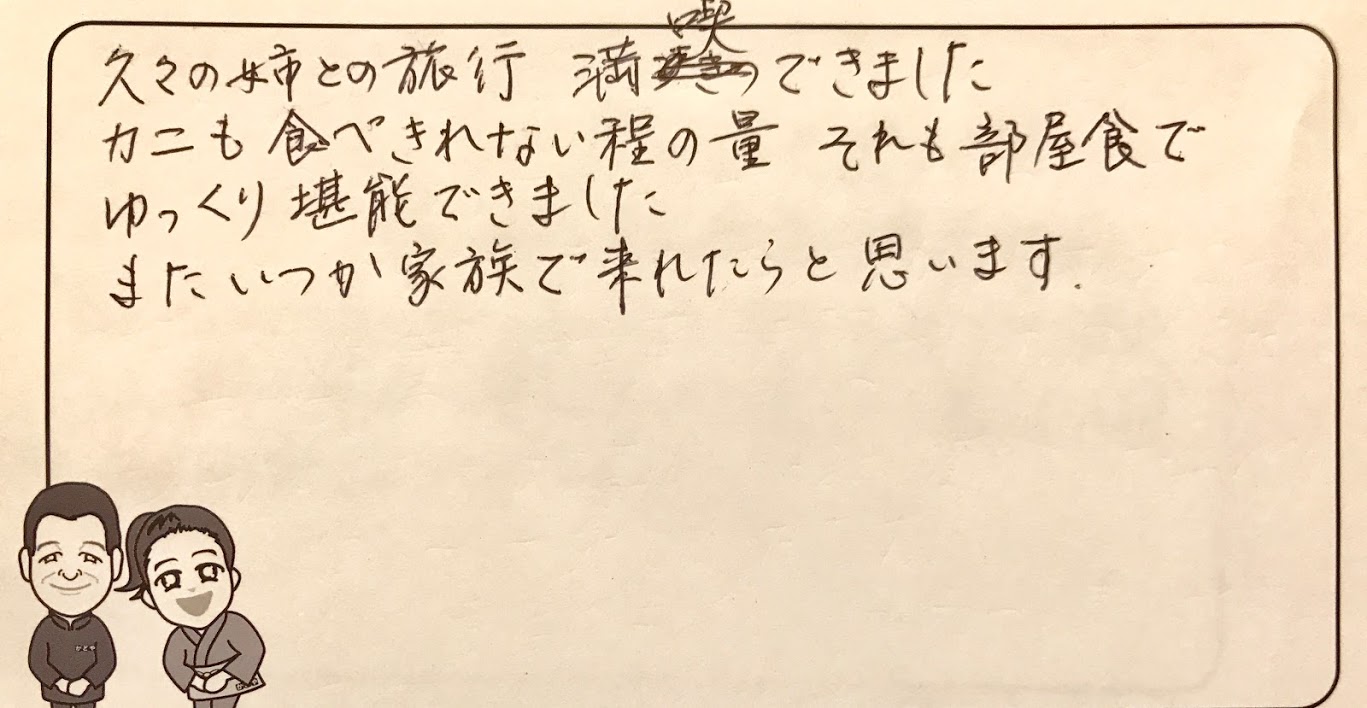 久々の姉との旅行 満喫できました
カニも食べきれない程の量 それも部屋食で
ゆっくり堪能できました
またいつか家族で来れたらと思います.
かどや